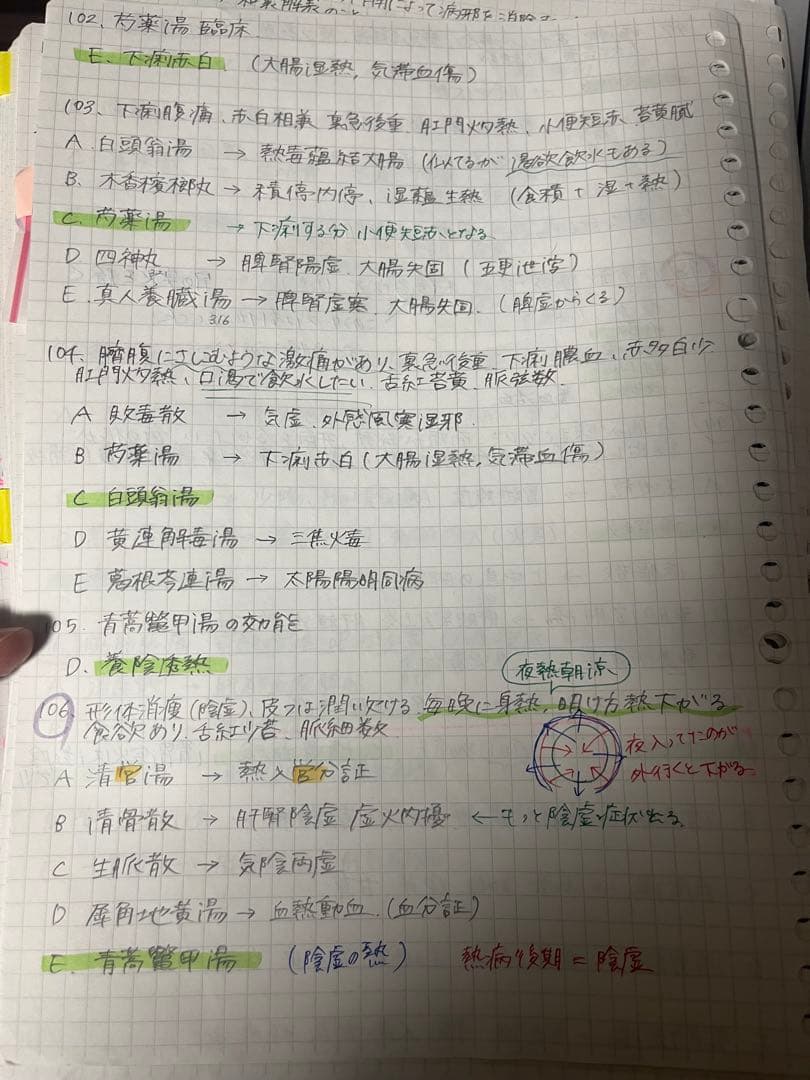 によって病邪を消除
102、芍薬湯 臨床
E. 下痢赤白 (大腸湿熱, 気滞血傷)
103、下痢腹痛、赤白相兼 裏急後重 肛門灼熱、小便短赤 苔黄膩
A. 白頭翁湯 → 熱毒蘊結大腸 (似てるが 渇欲飲水もある)
B. 木香檳榔丸 → 積停内停、湿蘊生熱 (食積+湿+熱)
C. 芍薬湯 → 下痢する分 小便短赤となる
D 四神丸 → 脾腎陽虚、大腸失固 (五更泄瀉)
E. 真人養臓湯 → 脾腎虚寒、大腸失固. (脾虚からくる)
316
104、臍腹にさしこむような激痛があり、裏急後重、下痢膿血、赤多白少
肛門灼熱、口渇で飲水したい、舌紅苔黄、脈弦数
A 敗毒散 → 気虚、外感風寒湿邪
B 芍薬湯 → 下痢赤白 (大腸湿熱, 気滞血傷)
C 白頭翁湯
D 黄連解毒湯 → 三焦火毒
E 葛根芩連湯 → 太陽陽明同病
105. 青蒿鼈甲湯の効能
D. 養陰透熱
夜熱朝涼
106、形体消痩(陰虚)、皮フは潤い欠ける、毎晩に身熱、明け方熱下がる
食欲あり、舌紅少苔、脈細数
夜入ってたのが
外行くと下がる
A 清営湯 → 熱入営分証
B 清骨散 → 肝腎陰虚 虚火内擾 ← もっと陰虚症状出る
C 生脈散 → 気陰両虚
D 犀角地黄湯 → 血熱動血 (血分証)
E. 青蒿鼈甲湯 (陰虚の熱) 熱病後期=陰虚